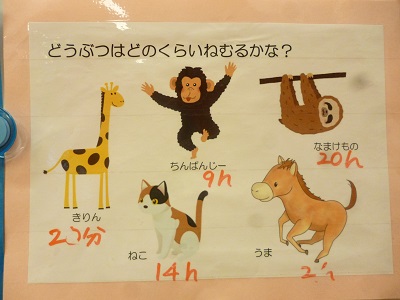 どうぶつはどのくらいねむるかな？
ちんぱんじー
9h
なまけもの
20h
きりん
ねこ
14h
うま